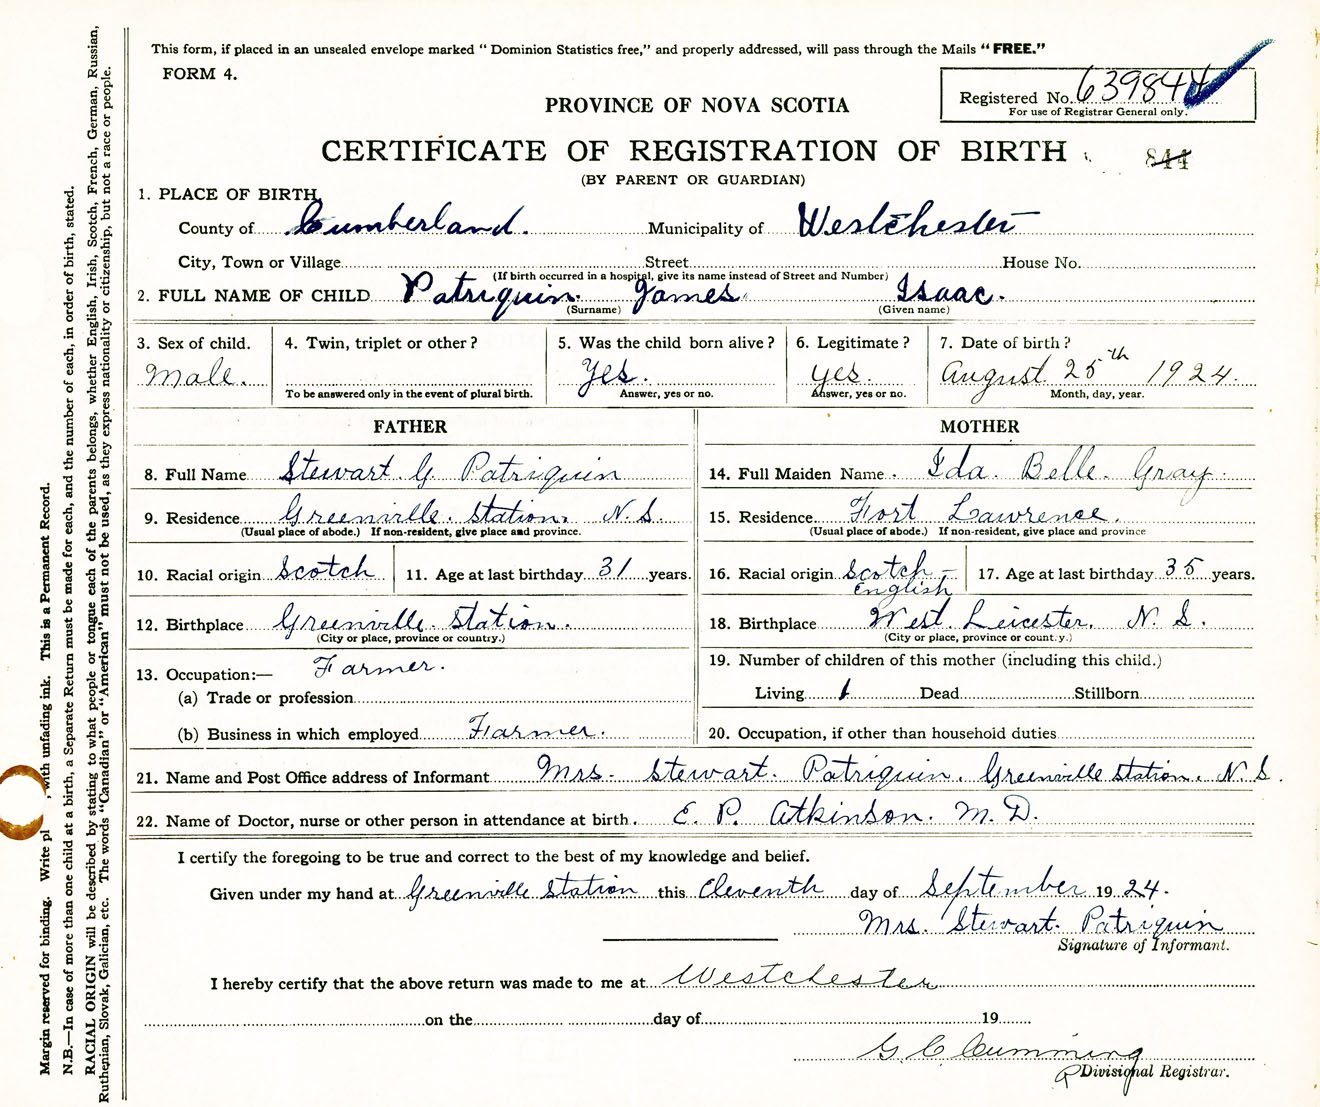 This form, if placed in an unsealed envelope marked “ Dominion Statistics free,” and properly addressed, will pass through the Mails “ FREE.”
FORM 4.
Registered No. 639844
For use of Registrar General only.
PROVINCE OF NOVA SCOTIA
CERTIFICATE OF REGISTRATION OF BIRTH
844
(BY PARENT OR GUARDIAN)
1. PLACE OF BIRTH
County of Cumberland. Municipality of Westchester
City, Town or Village Street House No.
(If birth occurred in a hospital, give its name instead of Street and Number)
2. FULL NAME OF CHILD Patriquin. James Isaac.
(Surname) (Given name)
3. Sex of child. 4. Twin, triplet or other ? 5. Was the child born alive ? 6. Legitimate ? 7. Date of birth ?
Male. Yes. yes. August 25th 1924.
To be answered only in the event of plural birth. Answer, yes or no. Answer, yes or no. Month, day, year.
FATHER MOTHER
8. Full Name Stewart. G Patriquin 14. Full Maiden Name Ida. Belle. Gray.
9. Residence Greenville. Station. N. S. 15. Residence Fort Lawrence.
(Usual place of abode.) If non-resident, give place and province. (Usual place of abode.) If non-resident, give place and province
10. Racial origin Scotch 11. Age at last birthday 31 years. 16. Racial origin Scotch - English 17. Age at last birthday 35 years.
12. Birthplace Greenville. Station. 18. Birthplace West. Leicester. N. S.
(City or place, province or country.) (City or place, province or county.)
13. Occupation:— Farmer. 19. Number of children of this mother (including this child.)
(a) Trade or profession Living 1 Dead Stillborn
(b) Business in which employed Farmer. 20. Occupation, if other than household duties
21. Name and Post Office address of Informant Mrs. Stewart. Patriquin. Greenville Station. N. S.
22. Name of Doctor, nurse or other person in attendance at birth. E. P. Atkinson. M. D.
I certify the foregoing to be true and correct to the best of my knowledge and belief.
Given under my hand at Greenville Station this Eleventh day of September 1924.
Mrs. Stewart. Patriquin
Signature of Informant.
I hereby certify that the above return was made to me at Westchester
on the day of 19
G C Cumming
Divisional Registrar.
Margin reserved for binding. Write pl , with unfading ink. This is a Permanent Record.
N.B.—In case of more than one child at a birth, a Separate Return must be made for each, and the number of each, in order of birth, stated.
RACIAL ORIGIN will be described by stating to what people or tongue each of the parents belongs, whether English, Irish, Scotch, French, German, Russian,
Ruthenian, Slovak, Galician, etc. The words “Canadian” or “American” must not be used, as they express nationality or citizenship, but not a race or people.